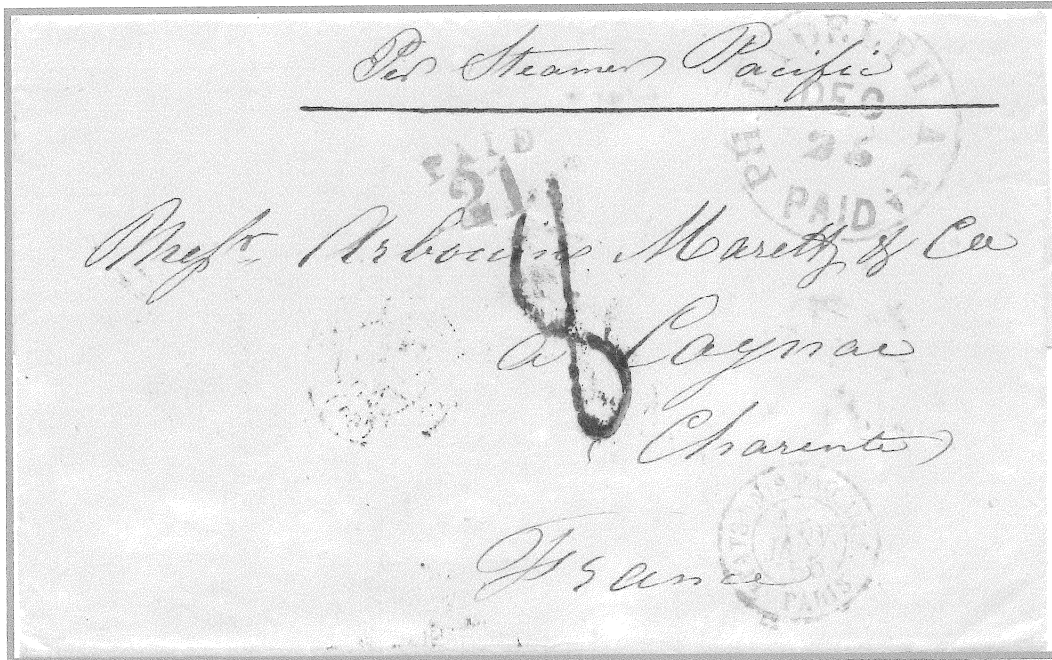 Per Steamer Pacific
PHILADELPHIA PA
DEC
25
PAID
PAID
21
Messrs Arbouin Marett & Co
8
a Cognac
Charente
France
PARIS